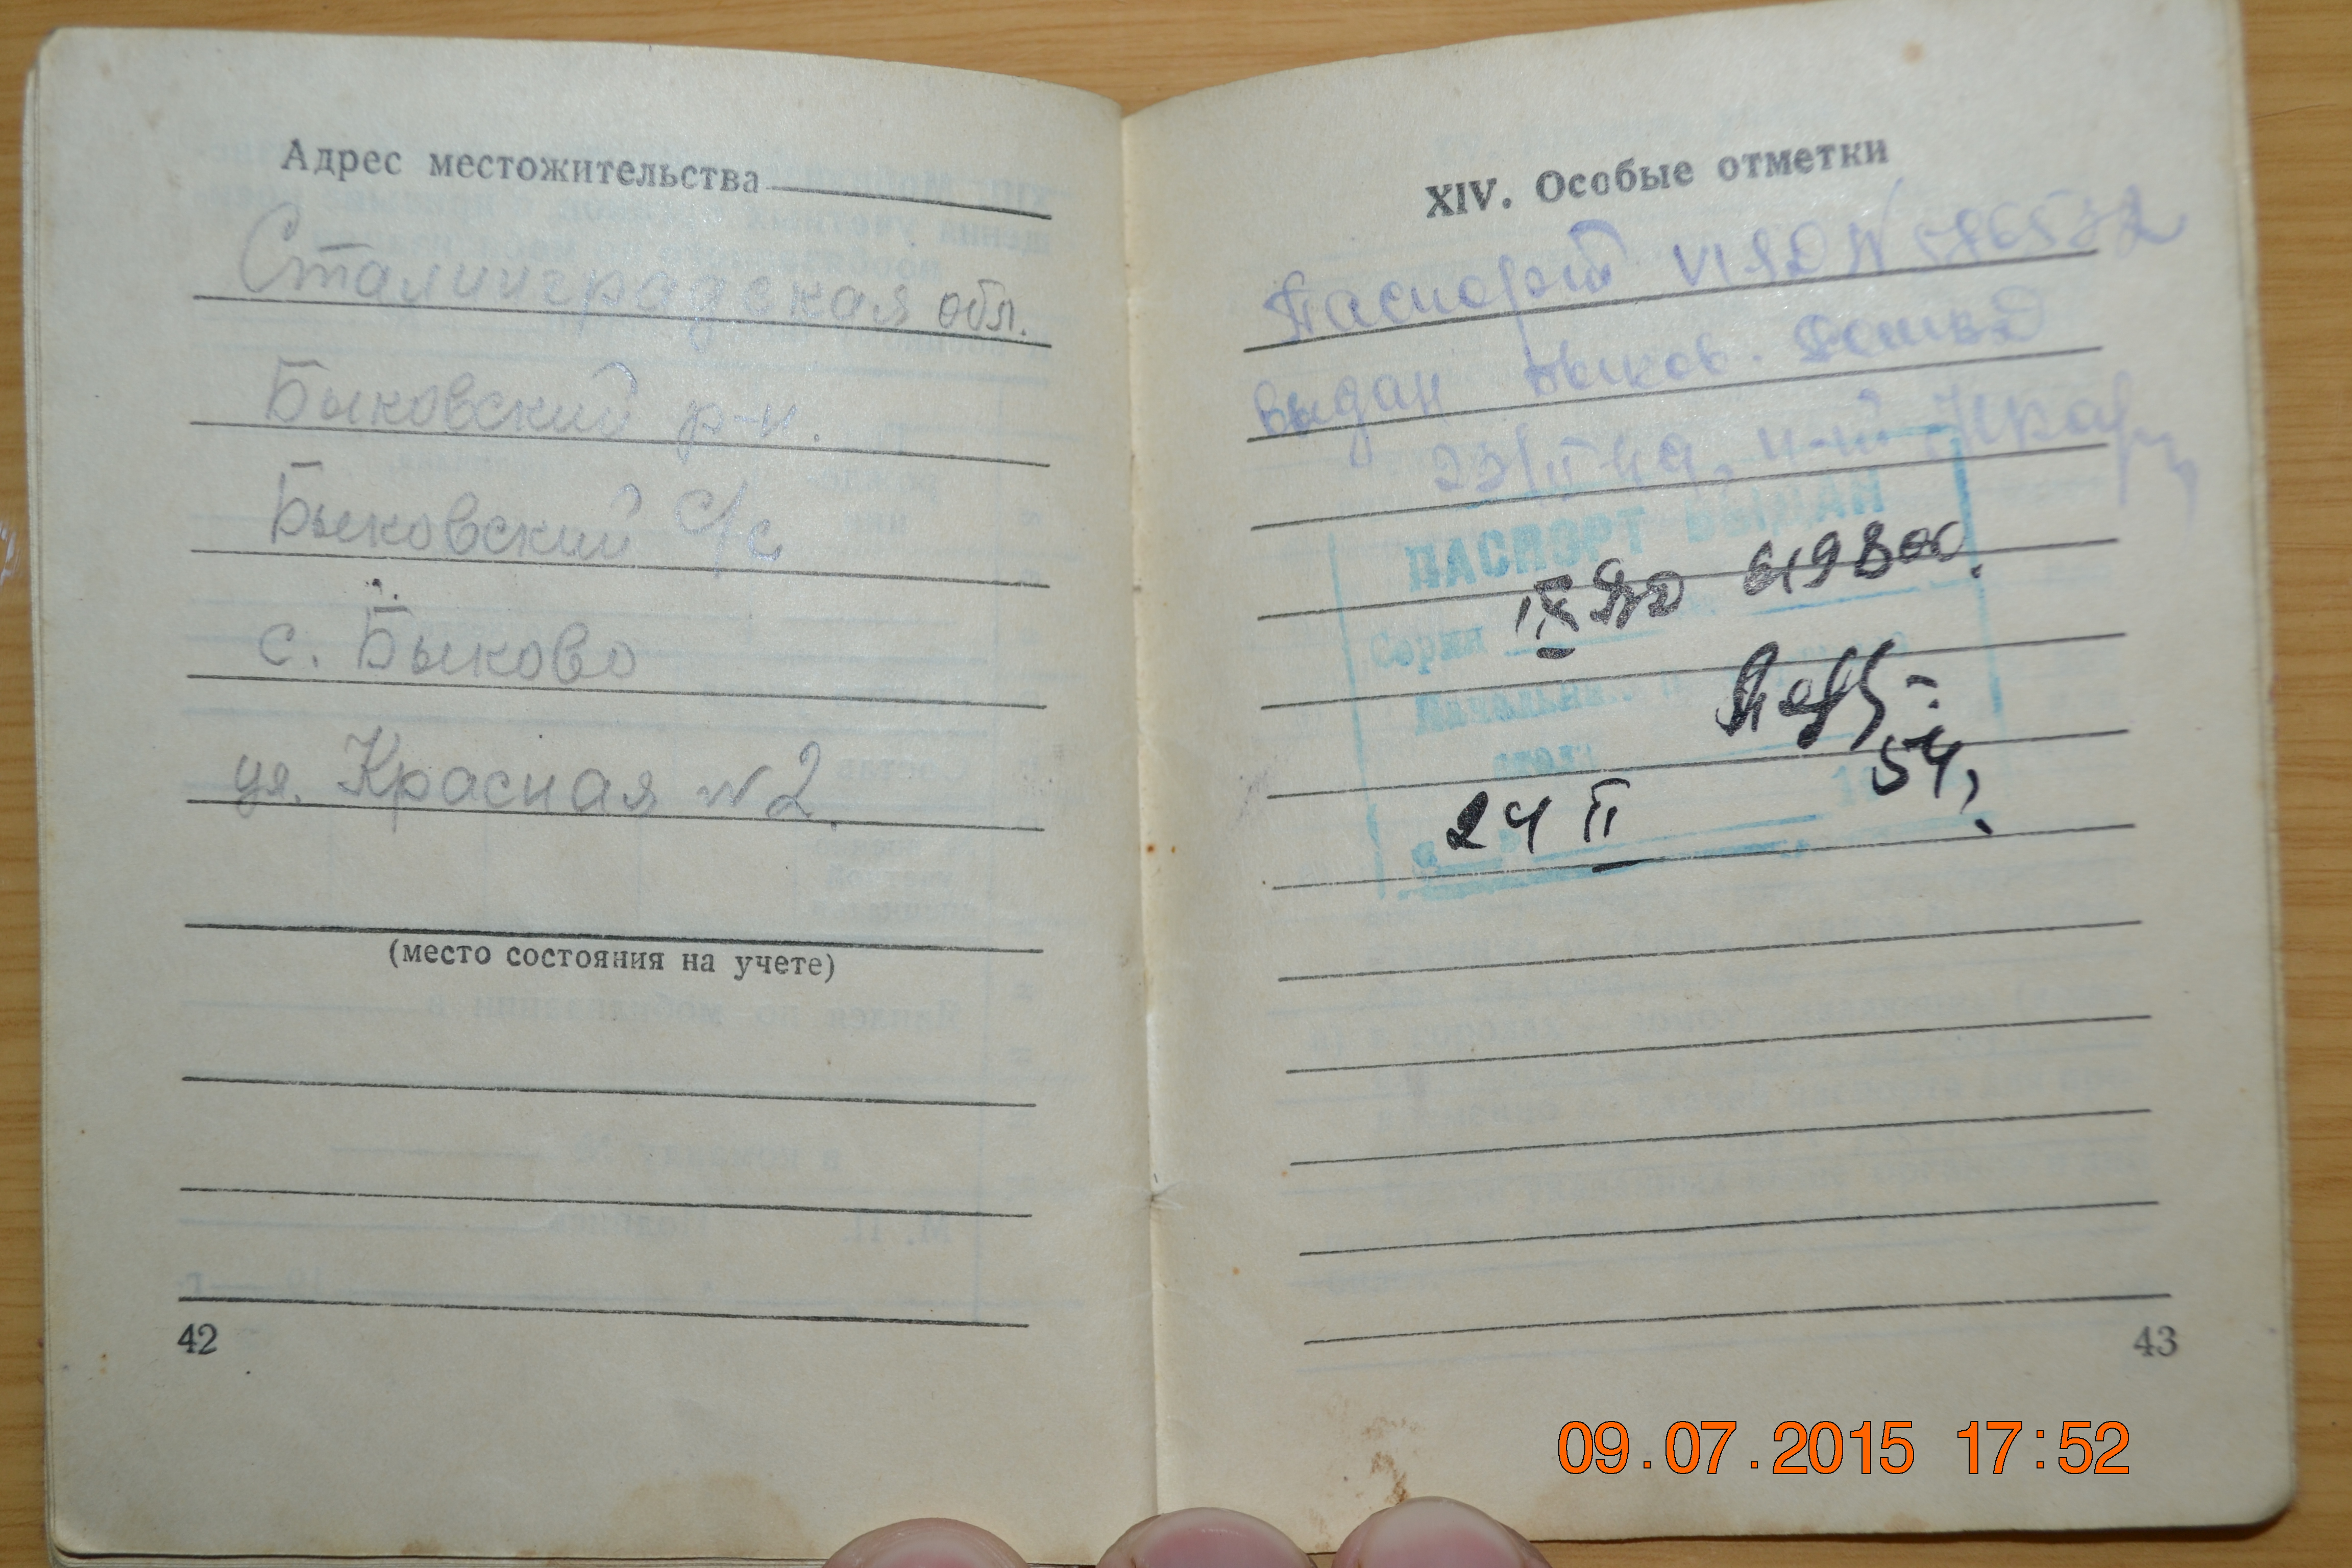 Адрес местожительства
Сталинградская обл.
Быковский р-н.
Быковский с/с
с. Быково
ул. Красная №2.
(место состояния на учете)
42
XIV. Особые отметки
Паспорт
выдан Быков.
ПАСПОРТ ВЫДАН
619800.
Серия
Начальник
стола
54,
24 II
43
09.07.2015 17:52